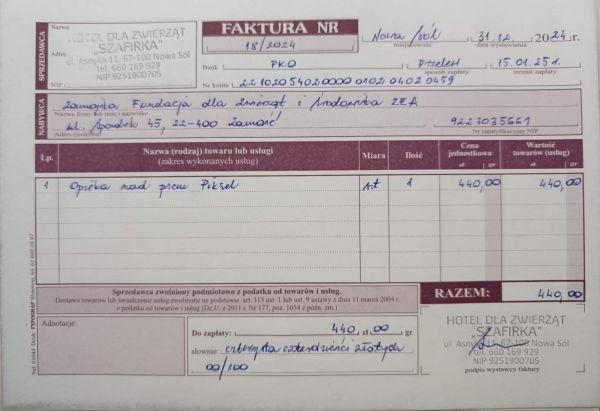 SPRZEDAWCA
Nazwa:
Adres
NIP
HOTEL DLA ZWIERZĄT
"SZAFIRKA"
ul. Asnyka 11, 67-100 Nowa Sól
tel. 660 169 929
NIP 9251900705
FAKTURA NR
18/2024
Nowa Sól 31.12. 2024 r.
miejscowość data wystawienia
Bank PKO Przelew 15.01.25 r.
sposób zapłaty termin zapłaty
Nr konta 22 1020 5402 0000 0102 0402 0459
NABYWCA
Zamojska Fundacja dla Zwierząt i Środowiska ZEA
Nazwa firmy lub imię i nazwisko
45, 22-400 Zamość 9223035661
Adres (siedziba) Nr identyfikacyjny NIP
Lp. Nazwa (rodzaj) towaru lub usługi Miara Ilość Cena jednostkowa Wartość towarów (usług)
(zakres wykonanych usług) zł gr zł gr
1 Opieka nad psem Piksel 1 440,00 440,00
Sprzedawca zwolniony podmiotowo z podatku od towarów i usług.
Dostawa towarów lub świadczenie usług zwolnione na podstawie art. 113 ust. 1 lub ust. 9 ustawy z dnia 11 marca 2004 r.
o podatku od towarów i usług (Dz.U. z 2011 r. Nr 177, poz. 1054 z późn. zm.)
RAZEM: 440,00
Adnotacje:
Do zapłaty: 440 zł 00 gr
słownie: czterysta czterdzieści złotych
00/100
HOTEL DLA ZWIERZĄT
"SZAFIRKA"
ul. Asnyka 11, 67-100 Nowa Sól
tel. 660 169 929
NIP 9251900705
podpis wystawcy faktury